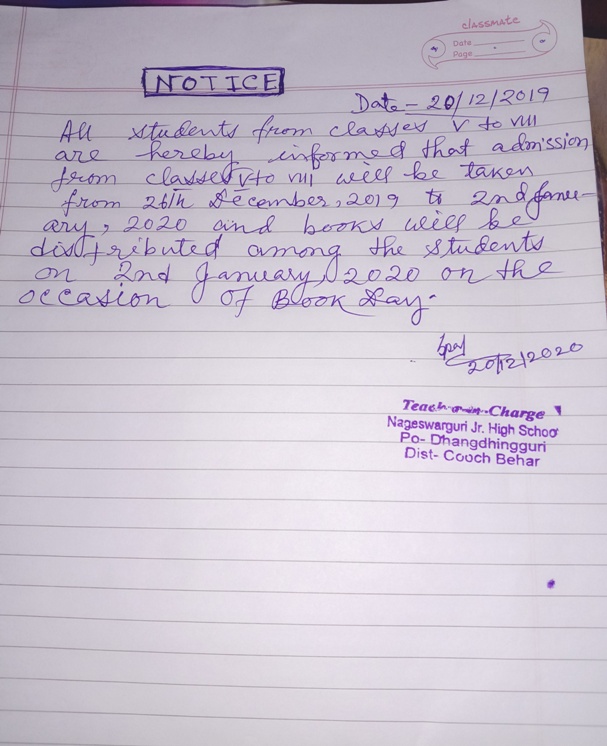 classmate
Date
Page
NOTICE
Date - 20/12/2019
All students from classes V to VIII
are hereby informed that admission
from classes V to VIII will be taken
from 26th December, 2019 to 2nd Janu-
ary, 2020 and books will be
distributed among the students
on 2nd January, 2020 on the
occasion of Book Day.
20/12/2020
Teacher-in-Charge
Nageswarguri Jr. High School
Po- Dhangdhingguri
Dist- Cooch Behar